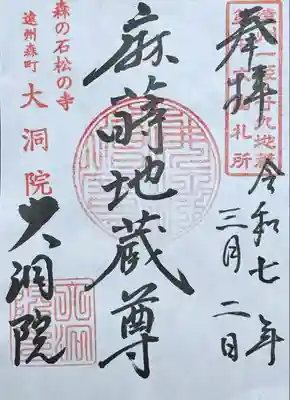 奉拝
令和七年
三月二日
麻蒔地蔵尊
森の石松の寺
遠州森町 大洞院
大洞院